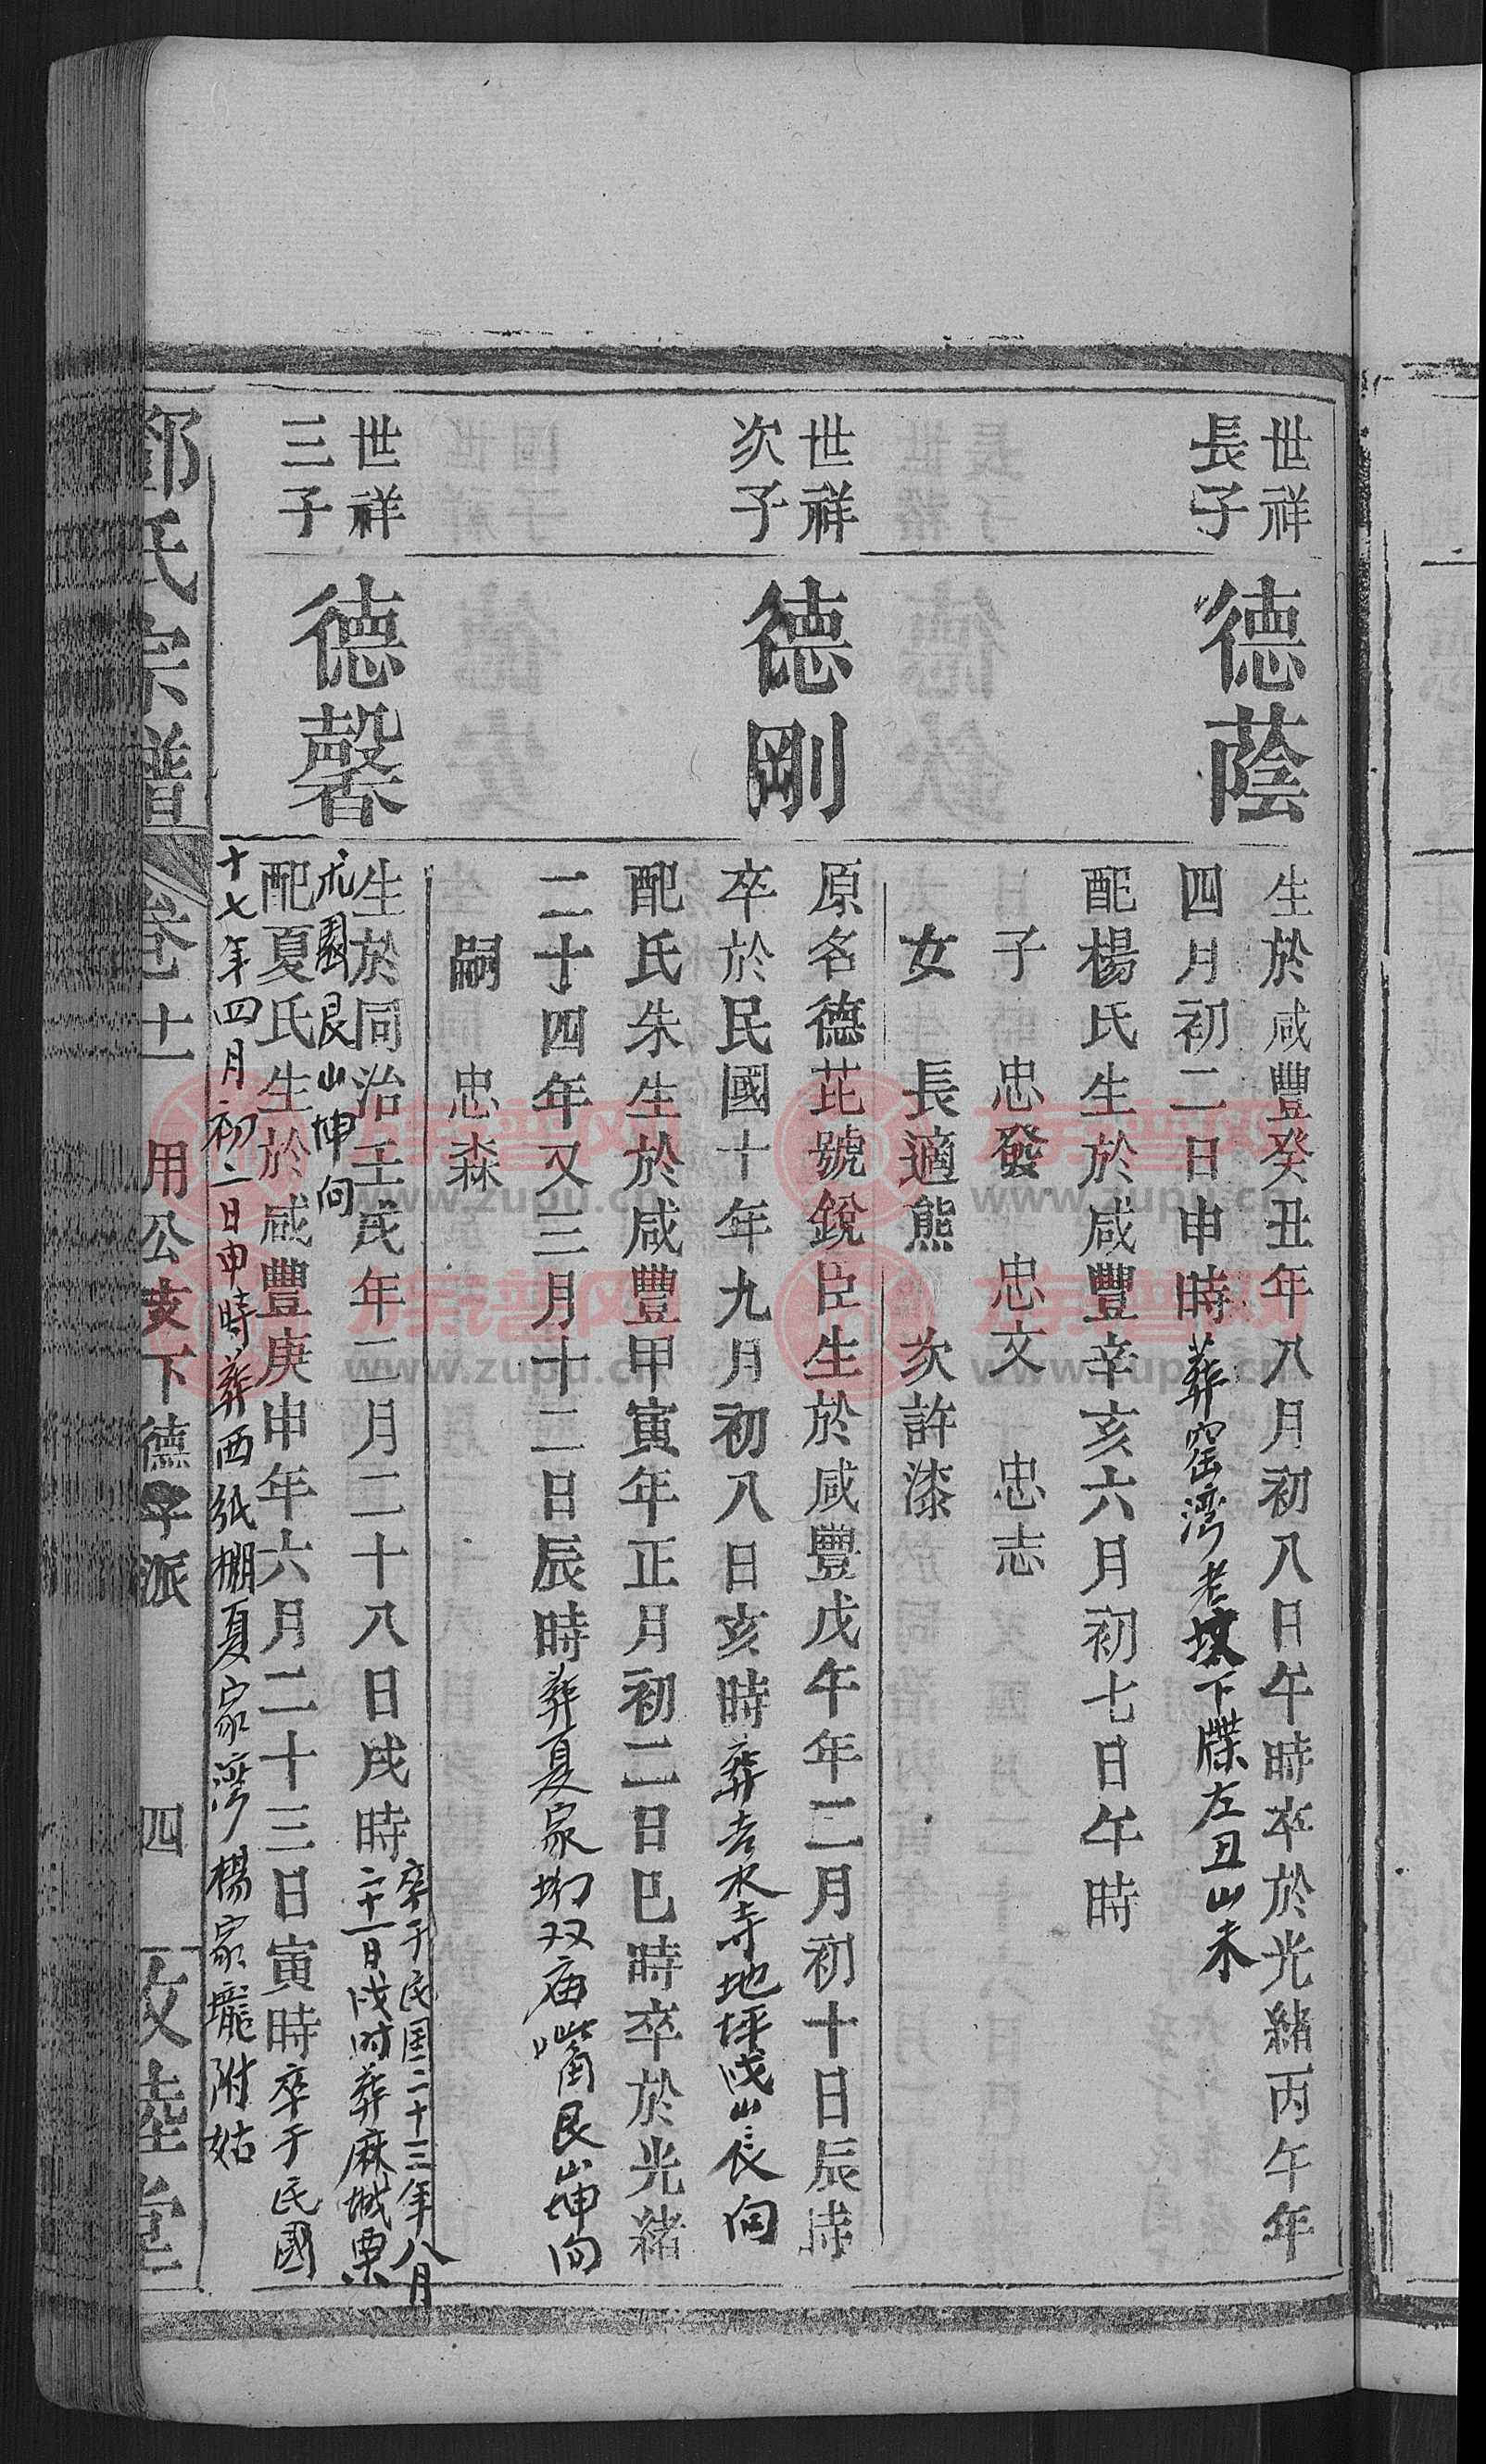 世祥
長子
德蔭
生於咸豐癸丑年八月初八日午時卒於光緒丙午年
四月初二日申時葬窑湾老坟下磜左丑山未
配楊氏生於咸豐辛亥六月初七日午時
子 忠發 忠文 忠志
女 長適熊 次許漆
世祥
次子
德剛
原名德芘號銳臣生於咸豐戊午年二月初十日辰时
卒於民國十年九月初八日亥時葬吉水寺地坪戌山辰向
配氏朱生於咸豐甲寅年正月初二日巳時卒於光緒
二十四年又三月十二日辰時葬夏家坳双庙嘴艮山坤向
嗣 忠森
世祥
三子
德馨
生於同治壬戌年二月二十八日戌時卒于民国二十三年八月
二十一日戌时葬麻城栗
艮山坤向
配夏氏生於咸豐庚申年六月二十三日寅時卒于民國
十七年四月初二日申時葬西纸棚夏家湾楊家壠附姑
鄧氏宗譜
卷十一
用公支下德字派
四
敦睦堂
族谱网
www.zupu.cn
族谱网
www.zupu.cn
族谱网
www.zupu.cn
族谱网
www.zupu.cn